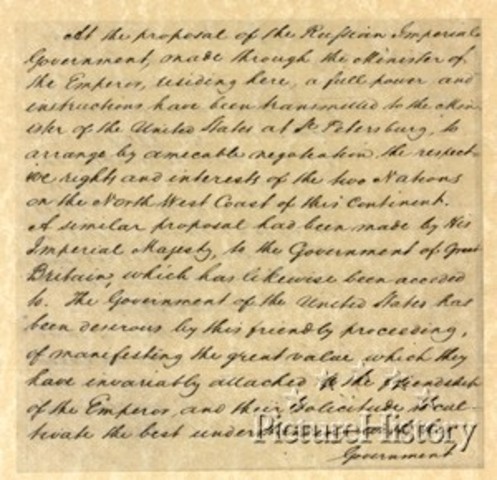 At the proposal of the Russian Imperial
Government, made through the Minister of
the Emperor, residing here, a full power and
instructions have been transmitted to the Min-
ister of the United States at St Petersburg, to
arrange by amicable negotiation the respect-
ive rights and interests of the two Nations
on the North West Coast of this Continent.
A similar proposal had been made by His
Imperial Majesty, to the Government of Great
Britain, which has likewise been acceded
to. The Government of the United States has
been desirous by this friendly proceeding,
of manifesting the great value, which they
have invariably attached to the friendship
of the Emperor, and their solicitude to cul-
tivate the best
PictureHistory
Government